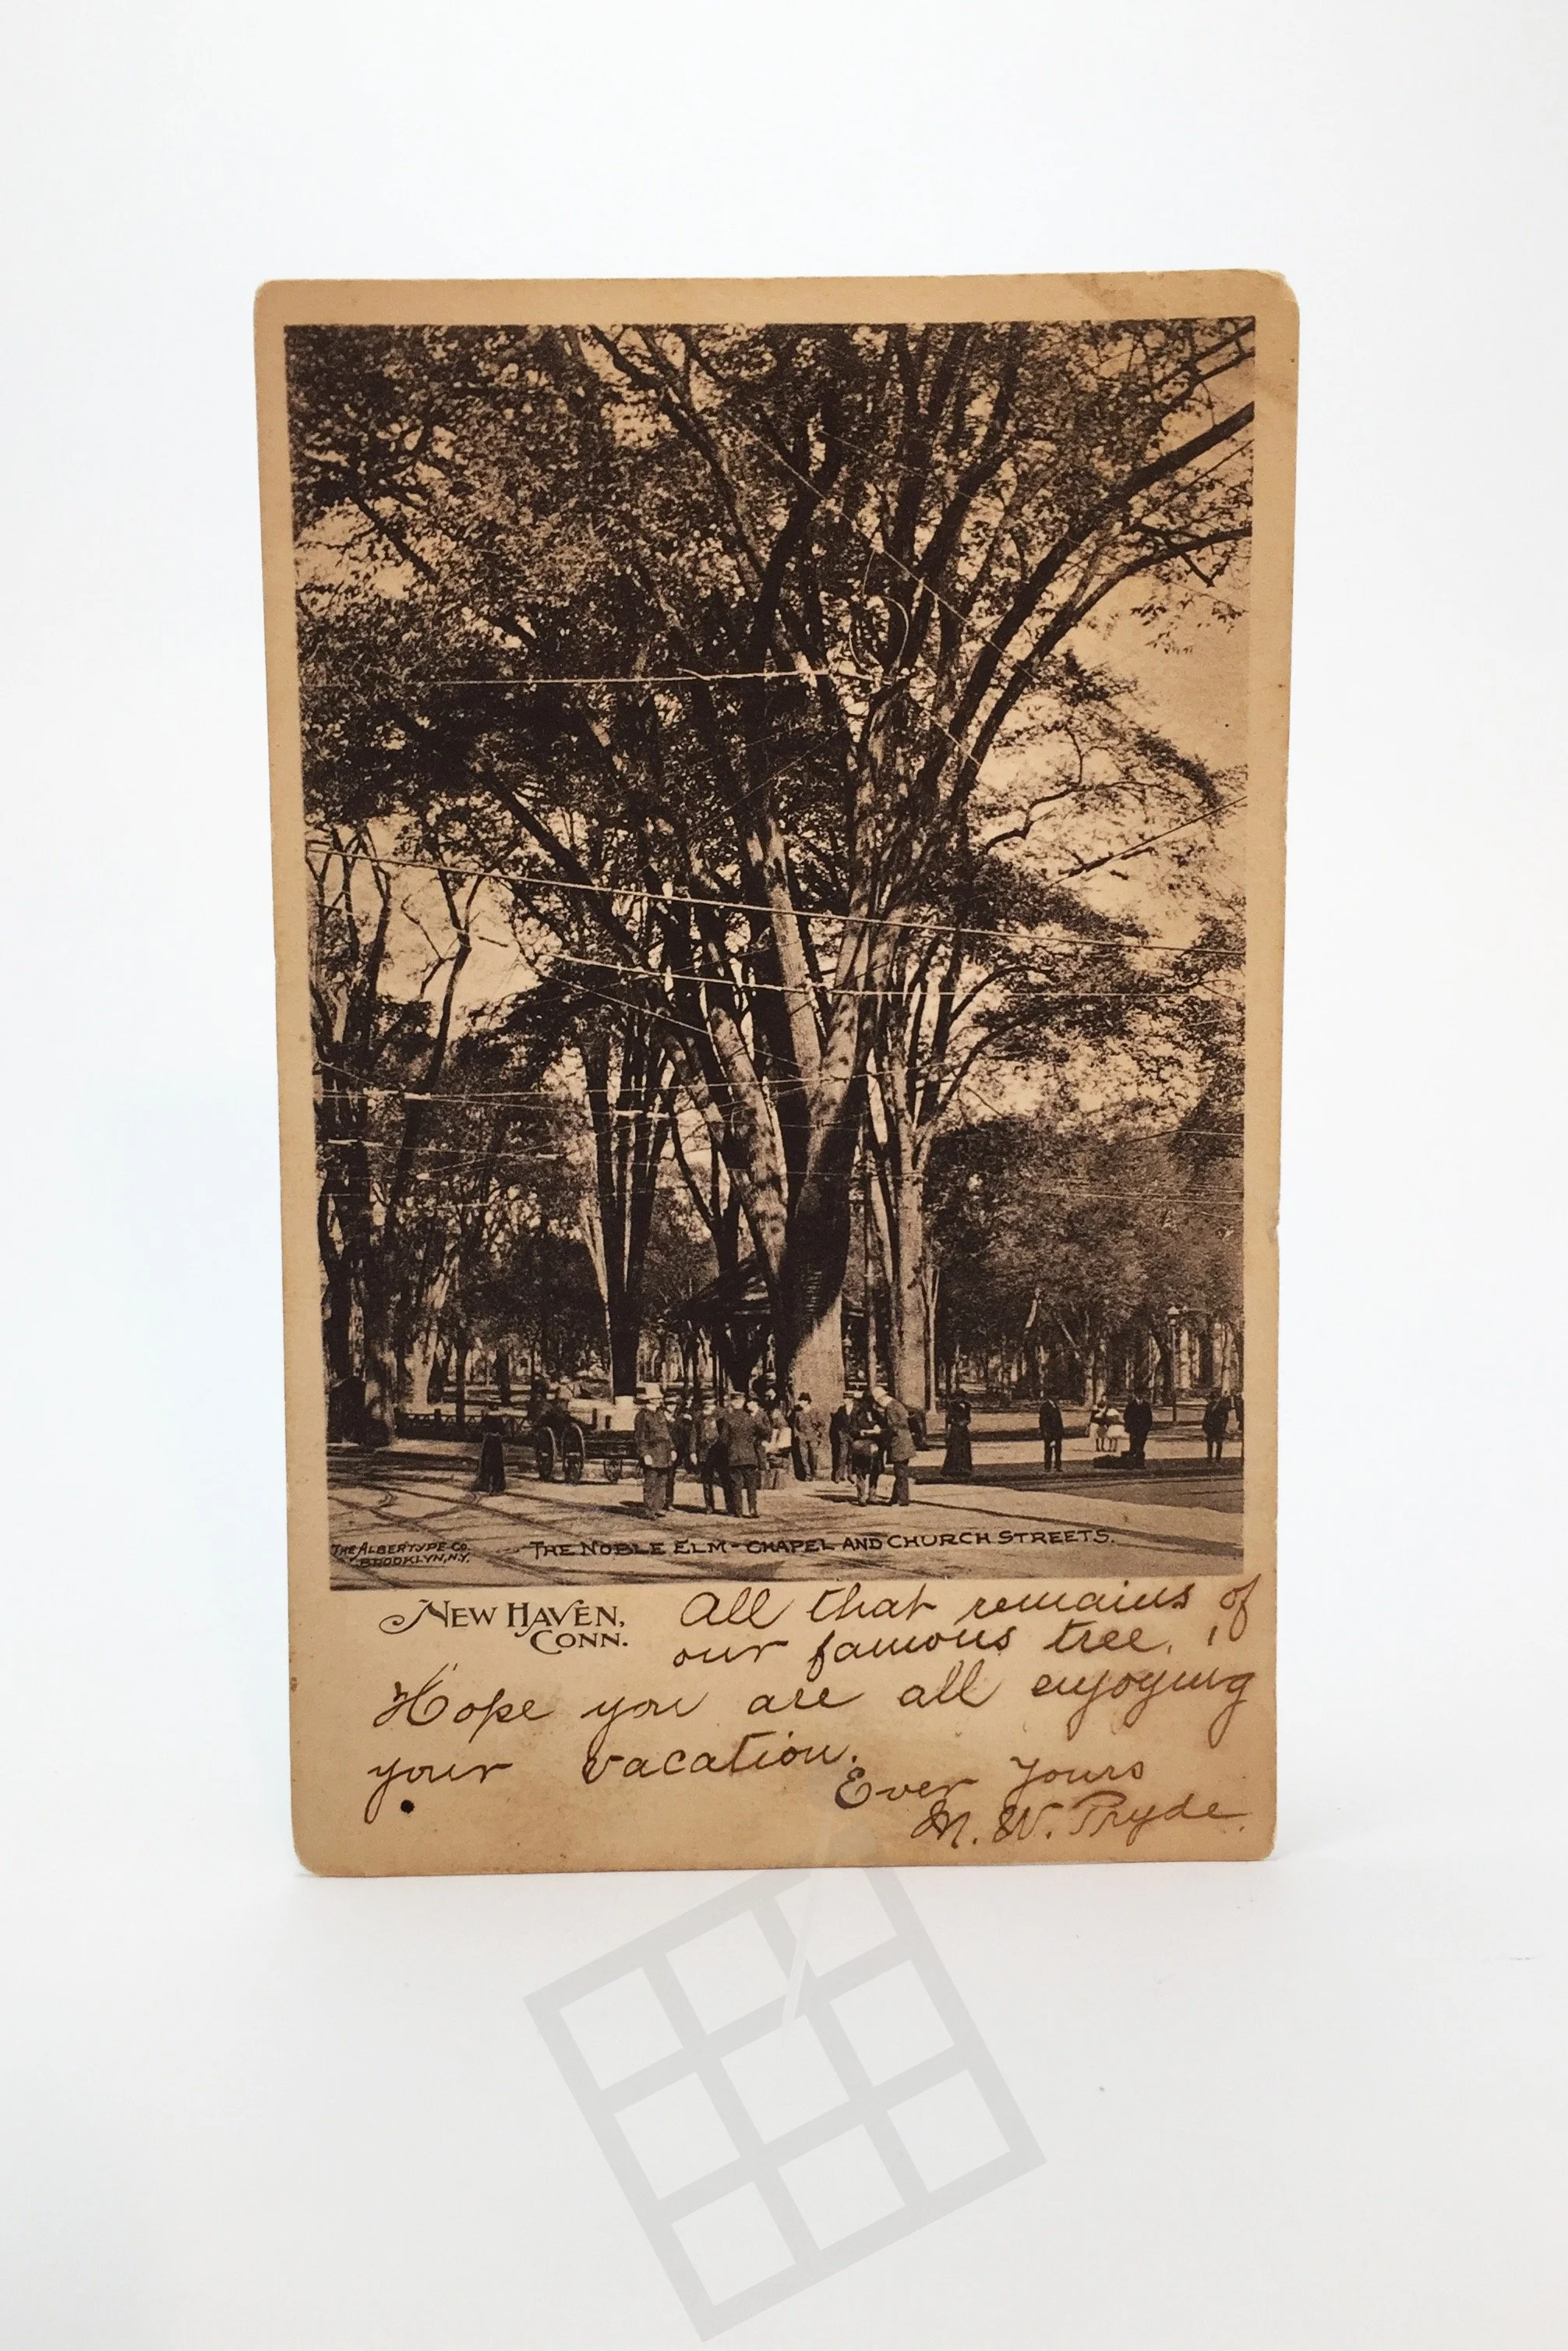 THE ALBERTYPE CO.
BROOKLYN, N.Y.
THE NOBLE ELM - CHAPEL AND CHURCH STREETS.
NEW HAVEN,
CONN.
All that remains of
our famous tree.
Hope you are all enjoying
your vacation.
Ever Yours
M. W. Pryde.